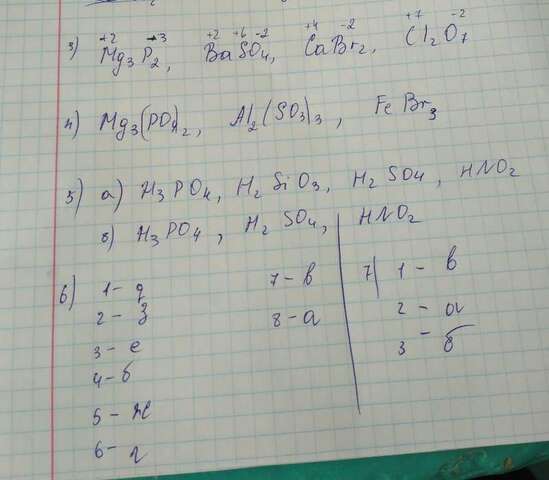 3) +2 Mg3 -3 P2, +2 Ba +6 S -2 O4, +4 CaBr2 -2, +7 Cl2 -2 O7
4) Mg3(PO4)2, Al2(SO3)3, FeBr3
5) а) H3PO4, H2SiO3, H2SO4, HNO2
в) H3PO4, H2SO4, HNO2
6) 1 - д
2 - з
3 - е
4 - б
5 - ж
6 - г
7 - в
8 - а
7) 1 - в
2 - а
3 - б